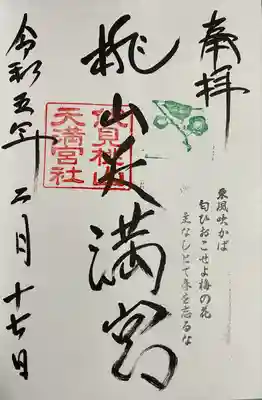 奉拝
東風吹かば
匂ひおこせよ梅の花
主なしとて春を忘るな
桃山天満宮
伏見桃山
天満宮社
令和五年二月十七日